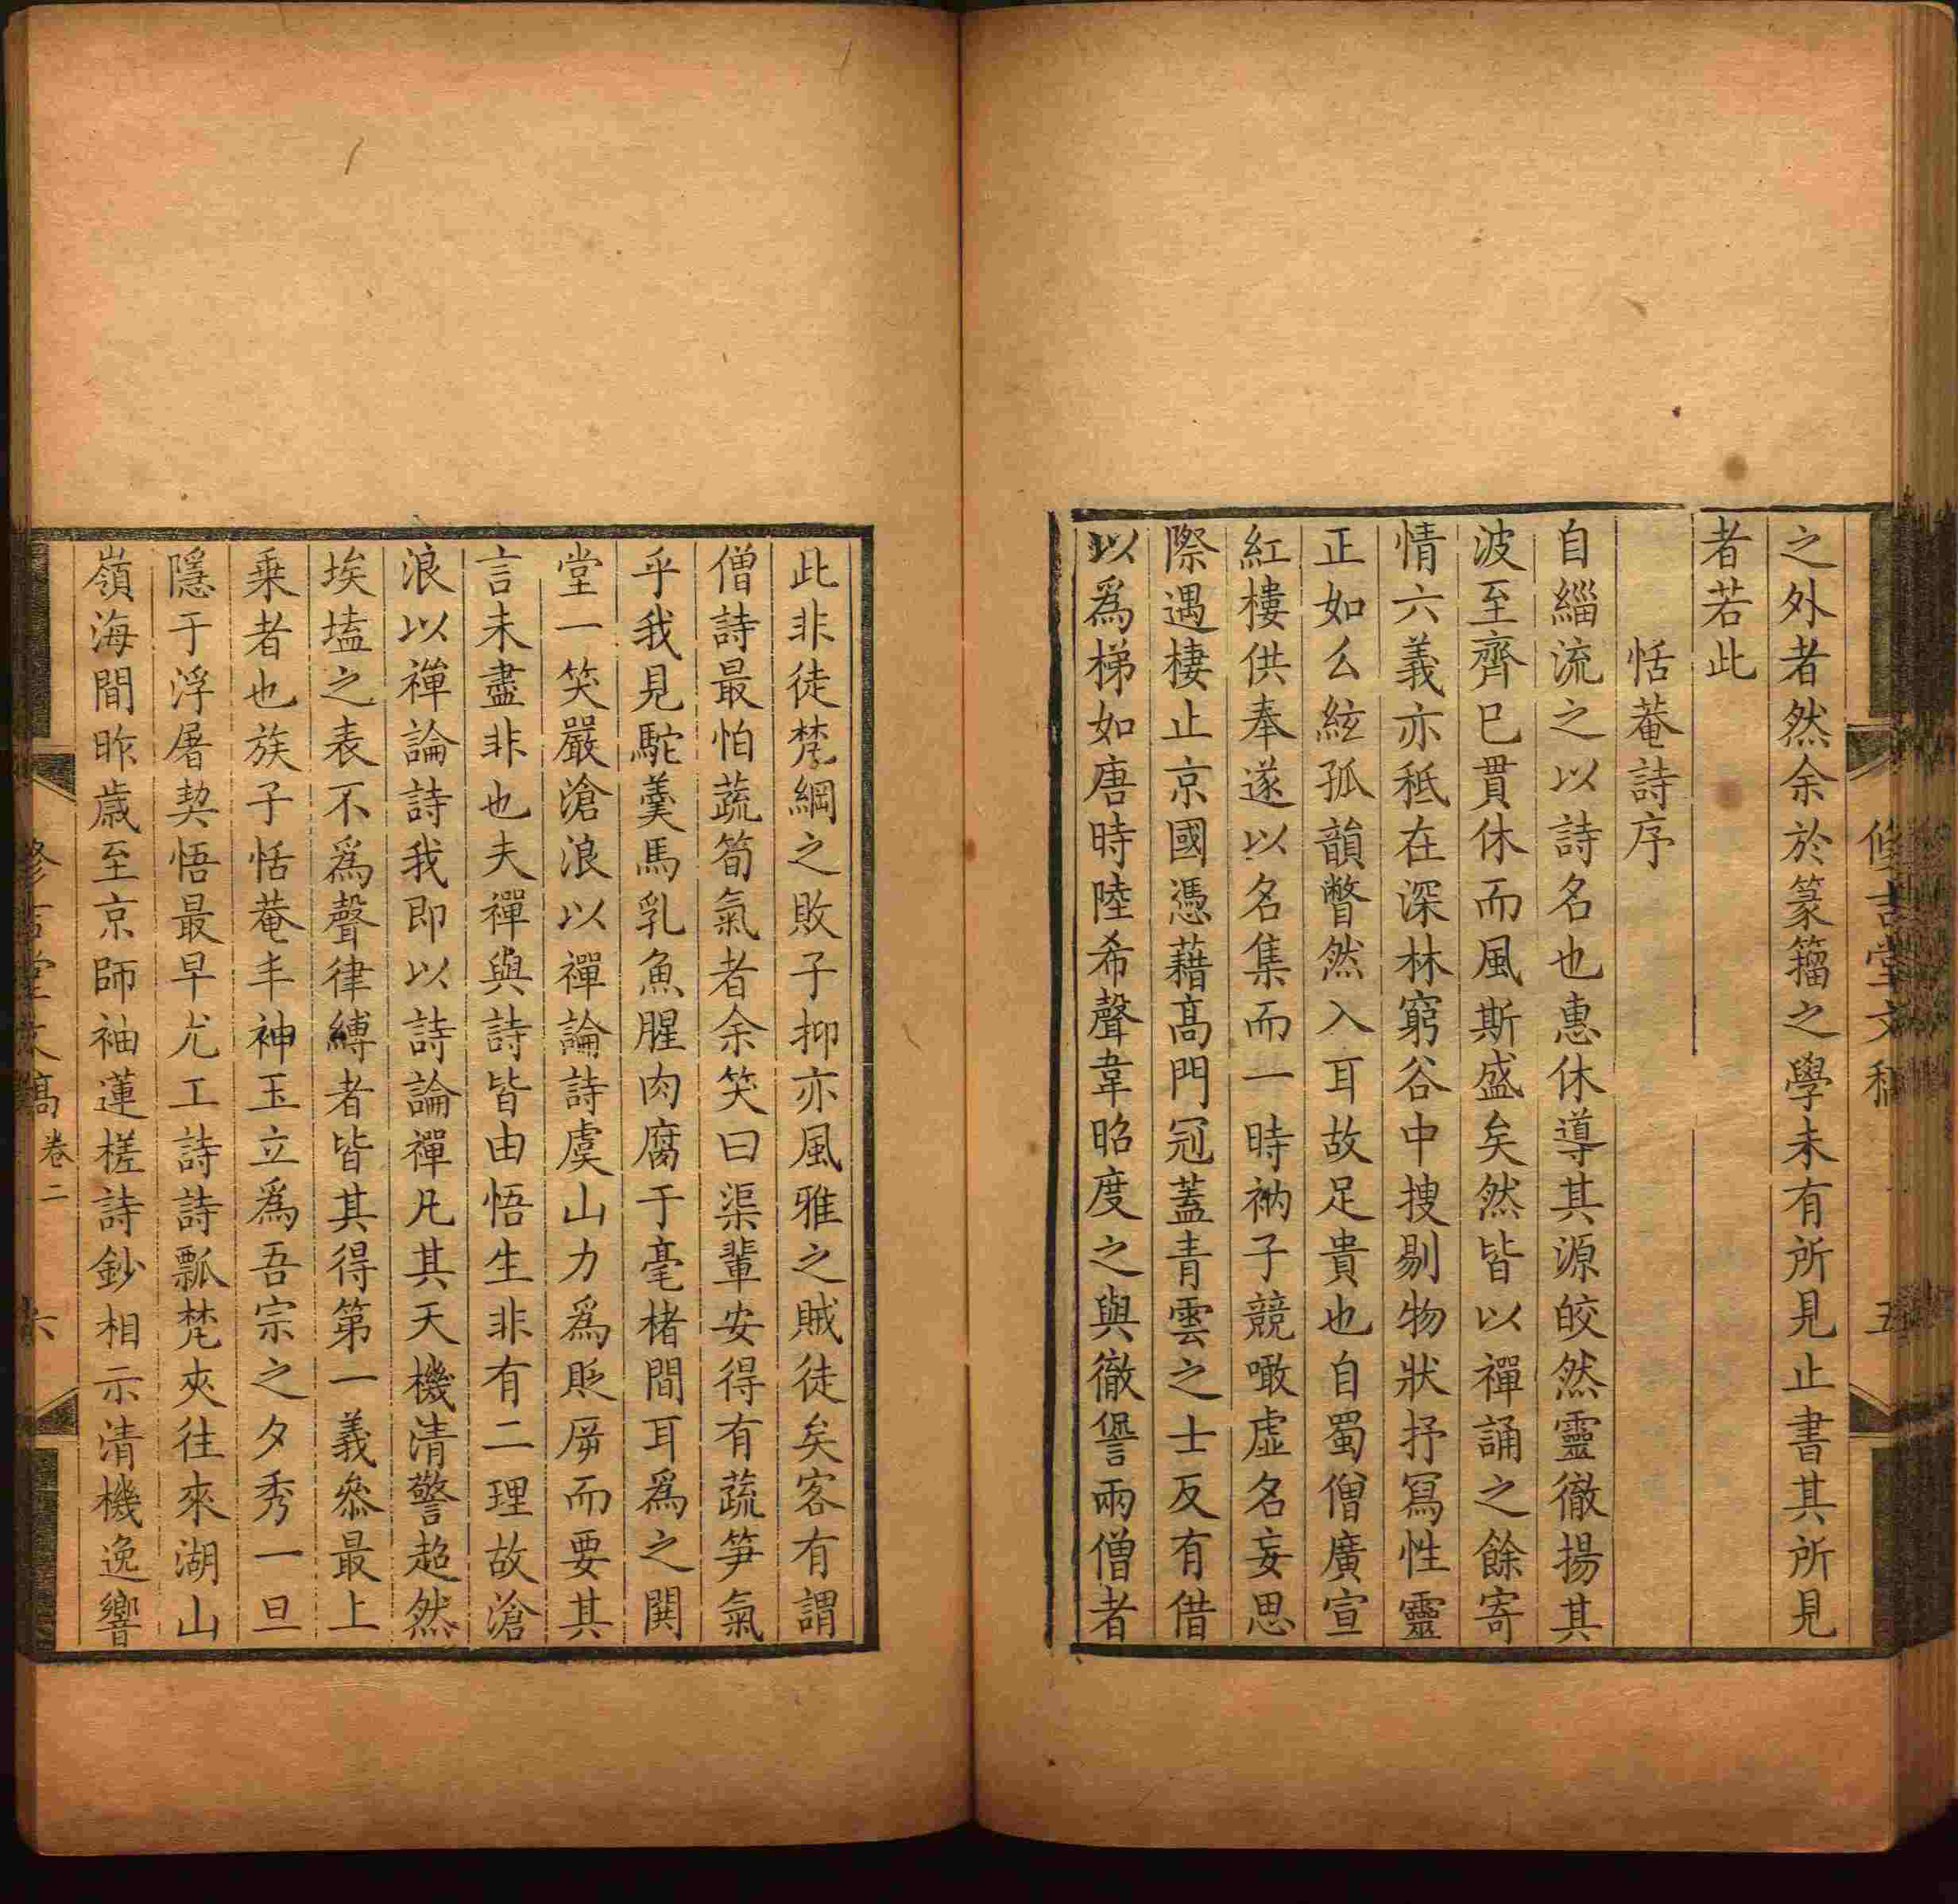 之外者然余於篆籀之學未有所見止書其所見
者若此
恬菴詩序
自緇流之以詩名也惠休導其源皎然靈徹揚其
波至齊已貫休而風斯盛矣然皆以禪誦之餘寄
情六義亦秪在深林窮谷中捜剔物狀抒寫性靈
正如么絃孤韻瞥然入耳故足貴也自蜀僧廣宣
紅樓供奉遂以名集而一時衲子競噉虛名妄思
際遇棲止京國憑藉高門冠蓋青雲之士反有借
以爲梯如唐時陸希聲韋昭度之與徹䛒兩僧者
此非徒梵綱之敗子抑亦風雅之賊徒矣客有謂
僧詩最怕蔬筍氣者余笑曰渠輩安得有蔬笋氣
乎我見駝羹馬乳魚腥肉腐于毫楮間耳爲之閧
堂一笑嚴滄浪以禪論詩虞山力爲貶屏而要其
言未盡非也夫禪與詩皆由悟生非有二理故滄
浪以禪論詩我即以詩論禪凡其天機清警超然
埃壒之表不爲聲律縛者皆其得第一義叅最上
乗者也族子恬菴丰神玉立爲吾宗之夕秀一旦
隱于浮屠契悟最早尤工詩詩瓢梵夾往來湖山
嶺海間昨歲至京師袖蓮槎詩鈔相示清機逸響
卷二
六